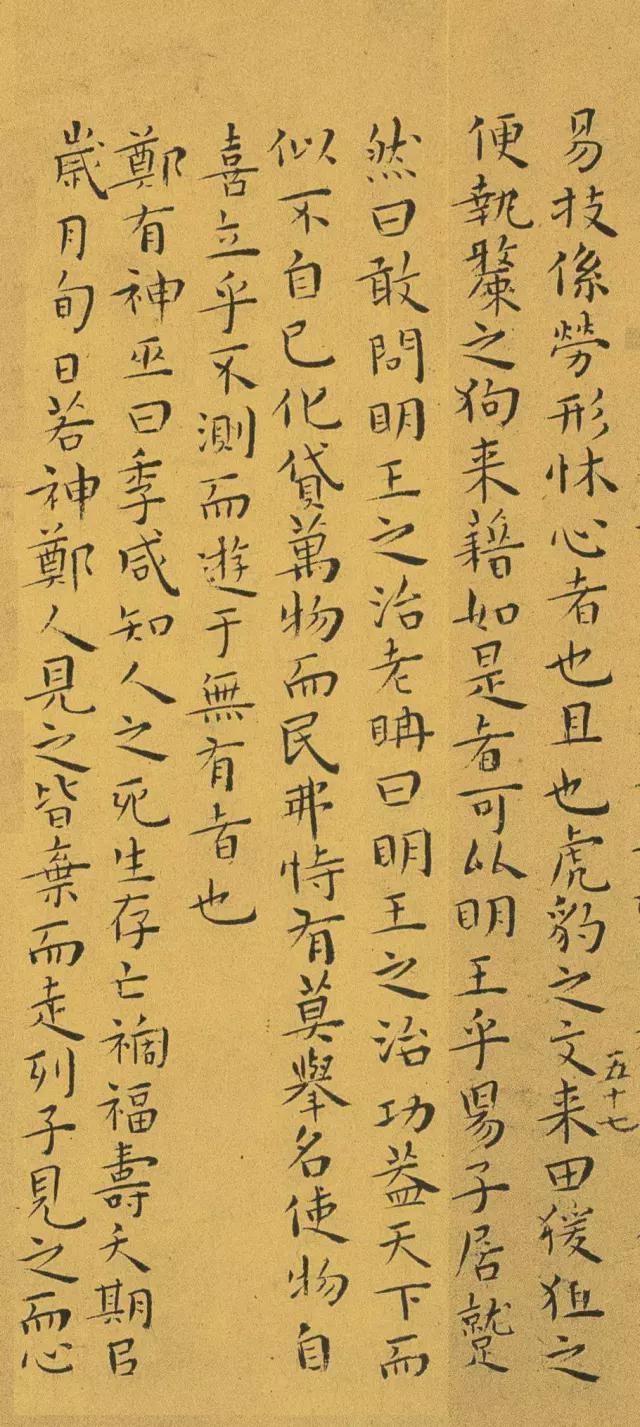 易技係勞形怵心者也且也虎豹之文来田猨狙之
五十七
便執斄之狗来藉如是者可以明王乎陽子居蹵
然曰敢問明王之治老耼曰明王之治功葢天下而
似不自已化貸萬物而民弗恃有莫舉名使物自
喜立乎不測而遊于無有者也
鄭有神巫曰季咸知人之死生存亡禍福壽夭期㠯
歲月旬日若神鄭人見之皆棄而走列子見之而心